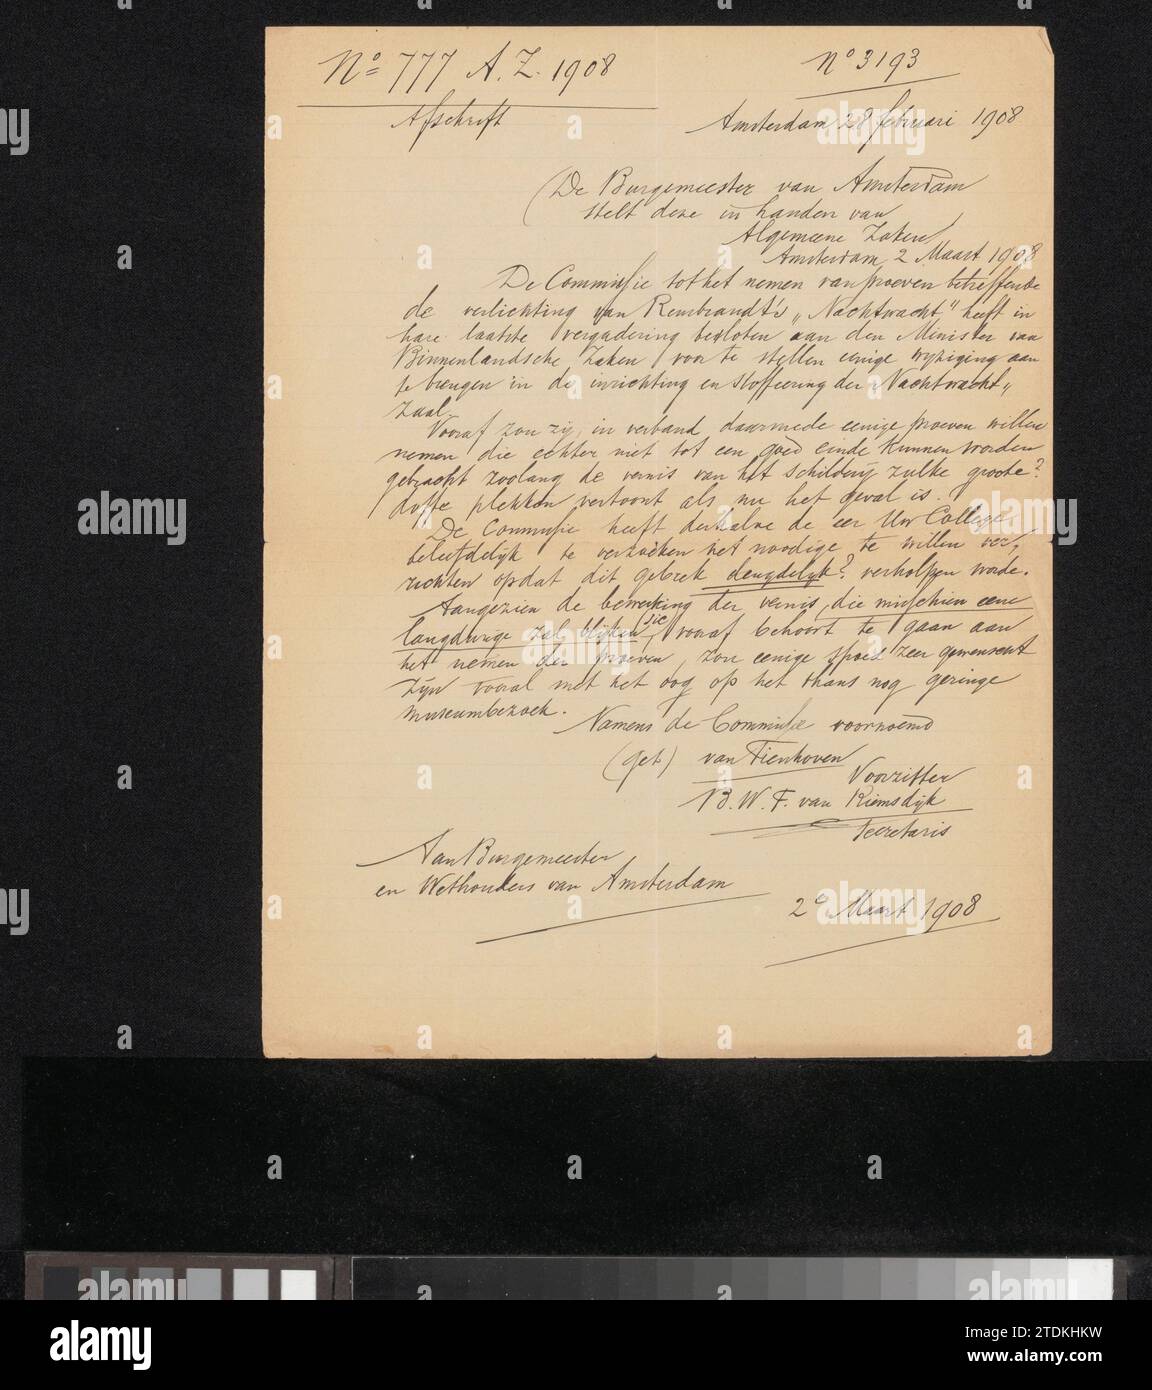 No 777 A.Z. 1908
No 3193
Afschrift
Amsterdam 28 februari 1908
(De Burgemeester van Amsterdam
stelt deze in handen van
Algemeene Zaken
Amsterdam 2 Maart 1908
De Commissie tot het nemen van proeven betreffende
de verlichting van Rembrandt's „Nachtwacht" heeft in
hare laatste vergadering besloten aan den Minister van
Binnenlandsche Zaken voor te stellen eenige wijziging aan
te brengen in de inrichting en stoffeering der „Nachtwacht"
zaal.
Vooraf zou zij, in verband daarmede eenige proeven willen
nemen die echter niet tot een goed einde kunnen worden
gebracht zoolang de vernis van het schilderij zulke groote?
doffe plekken vertoont als nu het geval is.
De Commissie heeft derhalve de eer Uw College
beleefdelijk te verzoeken het noodige te willen ver,
richten opdat dit gebrek deugdelijk? verholpen worde.
Aangezien de bewerking der vernis, die misschien eene
langdurige zal blijken, sic vooraf behoort te gaan aan
het nemen der proeven, zou eenige spoed zeer gewenscht
zijn vooral met het oog op het thans nog geringe
museumbezoek.
Namens de Commissie voornoemd
(get) van Tienhoven
Voorzitter
B.W.F. van Riemsdijk
Secretaris
Aan Burgemeester
en Wethouders van Amsterdam
2e Maart 1908
alamy
Image ID: 2TDKHKW
www.alamy.com